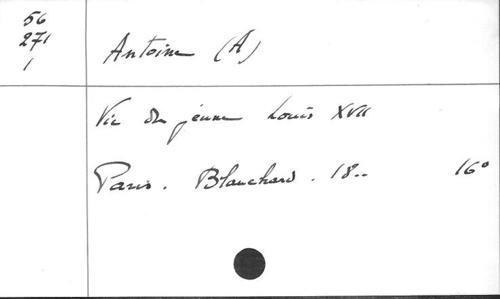 56
271
1
Antoine (A)
Vie du jeune Louis XVII
Paris. Blanchard. 18.. 16°